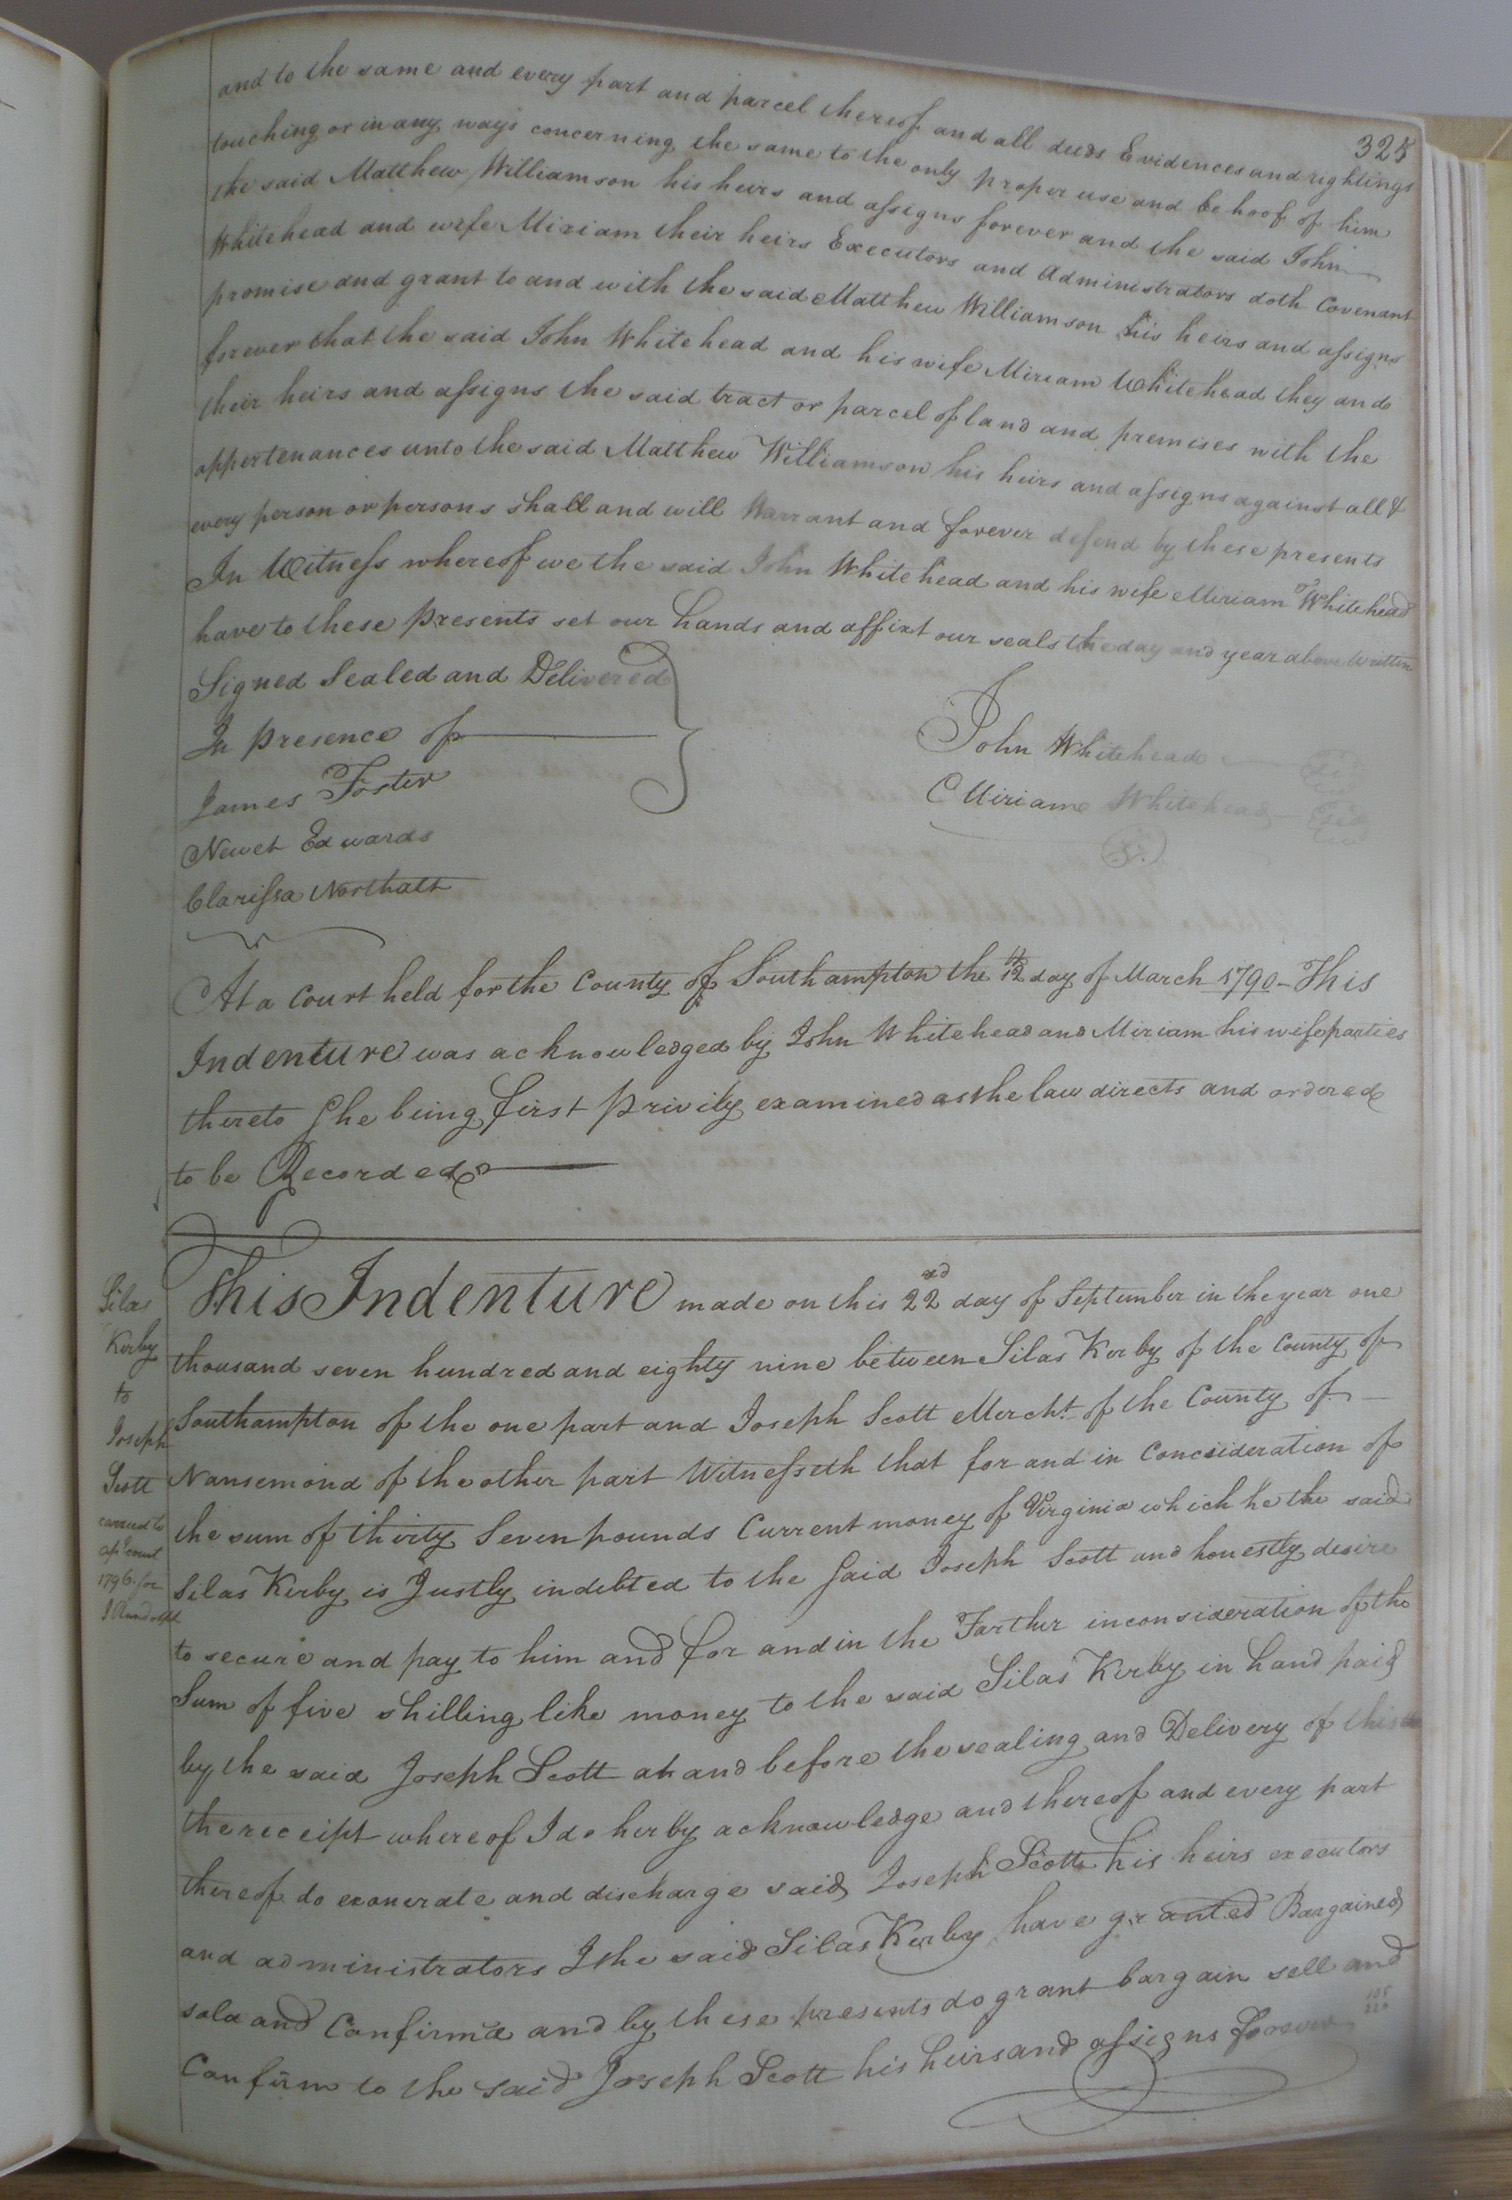 325
and to the same and every part and parcel thereof and all deeds Evidences and rightings
touching or in any ways concerning the same to the only proper use and behoof of him
the said Matthew Williamson his heirs and assigns forever and the said John
Whitehead and wife Miriam their heirs Executors and Administrators doth Covenant
promise and grant to and with the said Matthew Williamson his heirs and assigns
forever that the said John Whitehead and his wife Miriam Whitehead they and
their heirs and assigns the said tract or parcel of land and premises with the
appertenances unto the said Matthew Williamson his heirs and assigns against all &
every person or persons shall and will Warrant and forever defend by these presents
In Witness whereof we the said John Whitehead and his wife Miriam Whitehead
have to these presents set our hands and affixt our seals the day and year above Written
Signed Sealed and Delivered
In presence of
James Foster
Newet Edwards
Clarissa Northatt
John Whitehead
Miriam Whitehead
At a Court held for the County of Southampton the 12th day of March 1790 - This
Indenture was acknowledged by John Whitehead and Miriam his wife parties
thereto She being first privily examined as the law directs and ordered
to be Recorded
Silas
Kirby
to
Joseph
Scott
1796 for
This Indenture made on this 22nd day of September in the year one
thousand seven hundred and eighty nine between Silas Kirby of the County of
Southampton of the one part and Joseph Scott Mercht. of the County of
Nansemond of the other part Witnesseth that for and in Concsideration of
the sum of thirty Seven pounds Current money of Virginia which he the said
Silas Kirby is Justly indebted to the Said Joseph Scott and honestly desire
to secure and pay to him and for and in the Farther inconsideration of the
Sum of five shilling like money to the said Silas Kirby in hand paid
by the said Joseph Scott at and before the sealing and Delivery of this
the receipt whereof I do herby acknowledge and thereof and every part
thereof do exonerate and discharge said Joseph Scott his heirs executors
and administrators I the said Silas Kirby have granted Bargained
sold and Confirmd and by these presents do grant bargain sell and
Confirm to the Said Joseph Scott his heirs and assigns forever